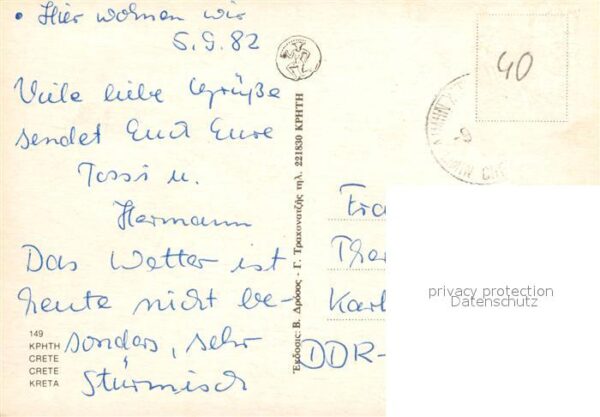 • Hier wohnen wir
5.9.82
Viele liebe Grüße
sendet Euch Eure
Tossi u.
Hermann
Das Wetter ist
heute nicht be-
sonders, sehr
stürmisch
149
ΚΡΗΤΗ
CRETE
CRETE
KRETA
Έκδοσις: Β. Δρόσος - Γ. Τραχονατζής τηλ. 221830 ΚΡΗΤΗ
40
Fra
Ther
Karl
DDR-
privacy protection
Datenschutz